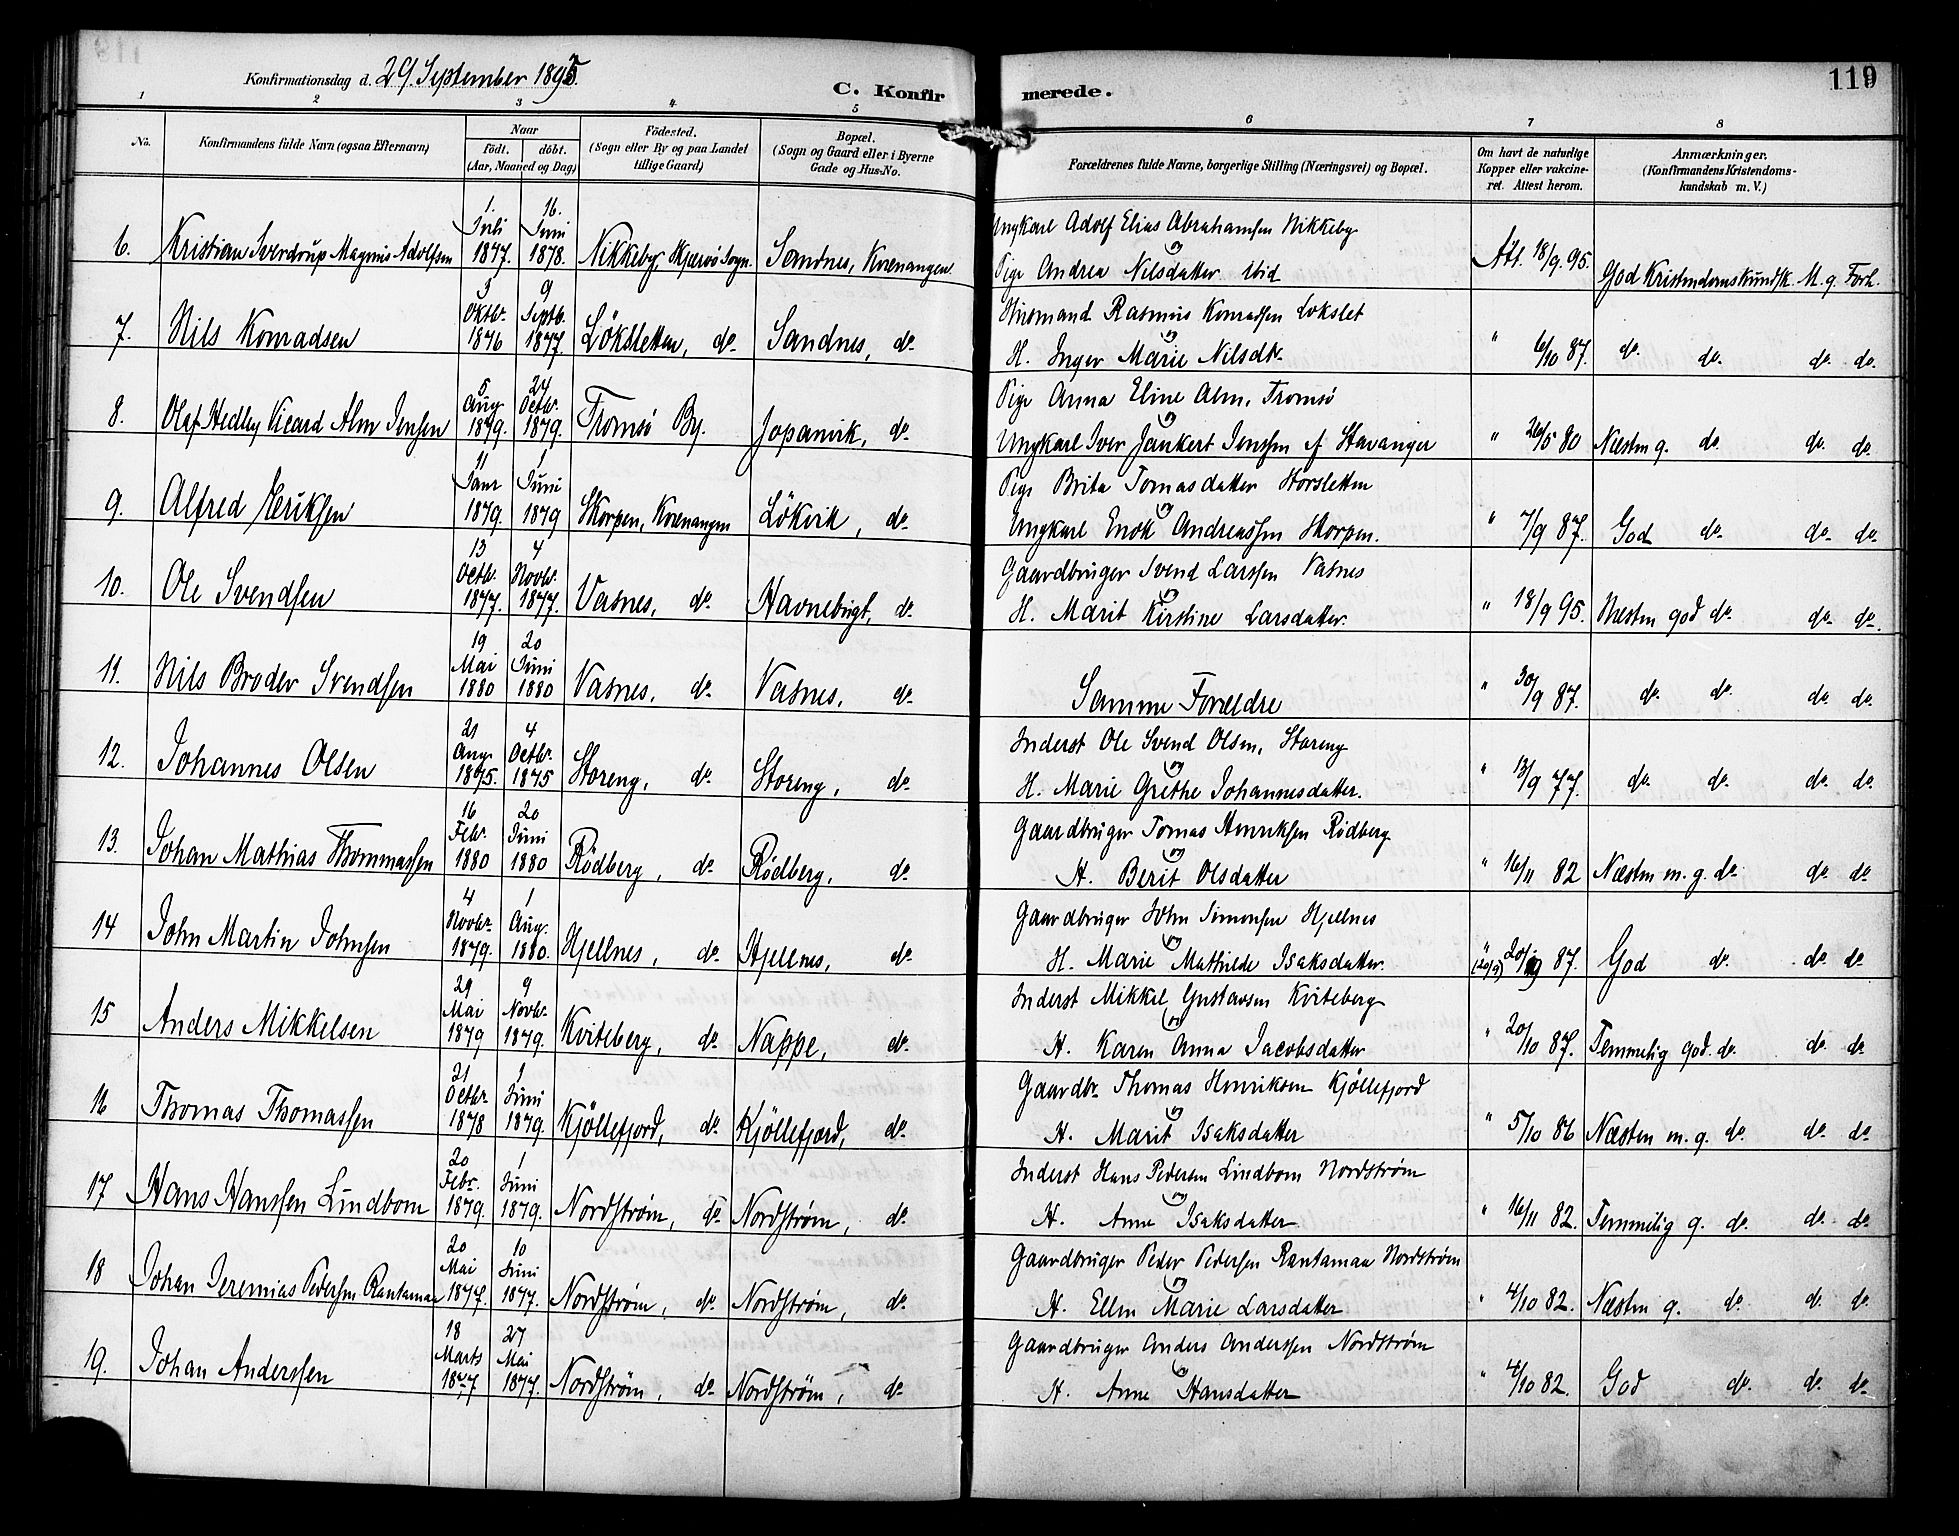 Konfirmationsdag d. 29. September 1895.
C. Konfirmerede.
119
1 2 3 4 5 6 7 8
No. Konfirmandens fulde Navn (ogsaa Efternavn) Naar Födt. döbt. (Aar, Maaned og Dag) Fødested. (Sogn eller By og paa Landet tillige Gaard) Bopæl. (Sogn og Gaard eller i Byerne Gade og Hus-No. Forældrenes fulde Navne, borgerlige Stilling (Næringsvei) og Bopæl. Om havt de naturlige Kopper eller vakcineret. Attest herom. Anmærkninger. (Konfirmandens Kristendomskundskab m. V.)
6. Kristian Sverdrup Magnus Adolfsen 1. Juli 1877. 16. Juni 1878. Nikkeby, Skjærvö Sogn. Sandnes, Kvænangen Ungkarl Adolf Elias Abrahamsen Nikkeby
og
Pige Andrea Nilsdatter ibid Att. 18/9. 95. God Kristendomskundsk. M. g. Forh.
7. Nils Konradsen 3 Oktbr. 1876 9 Septb. 1877. Löksletten, do. Sandnes, do. Husmand Rasmus Konradsen Lökslet
og
H. Inger Marie Nilsdtr. " 6/10 87. do. do. do. do.
8. Olaf Hedley Vicard Alm Jensen 5 Aug. 1879. 24 Octbr. 1879. Tromsö By. Jopanvik, do. Pige Anna Eline Alm, Tromsö
og
Ungkarl Iver Jankert Jenssen af Stavanger " 26/5 80 Næsten g. do. do. do.
9. Alfred Eriksen 11 Janr 1879. 1 Juni 1879 Skorpen, Kvænangen Lökvik, do. Pige Brita Tomasdatter Storsletten
og
Ungkarl Enok Andreassen Skorpen. " 7/9 87. God do. do. do.
10. Ole Svendsen 13 Octbr. 1877. 4 Novbr. 1877. Vasnes, do. Havnebugt, do. Gaardbruger Svend Larssen Vasnes
og
H. Marit Kirstine Larsdatter. " 18/9 95. Næsten god do. do. do.
11. Nils Broder Svendsen 19 Mai 1880 20 Juni 1880 Vasnes, do. Vasnes, do. Samme Forældre " 30/9 87. do. do. do. do.
12. Johannes Olsen 21 Aug. 1875. 4 Octbr. 1875 Storeng, do. Storeng, do. Inderst Ole Svend Olsen, Storeng
og
H. Marie Grethe Johannesdatter. " 13/9 77. do. do. do. do.
13. Johan Mathias Thommassen 16 Febr. 1880 20 Juni 1880 Rödberg, do. Rödberg, do. Gaardbruger Tomas Henriksen Rödberg
og
H. Berit Olsdatter " 16/11 82 Næsten m. g. do. do. do.
14 John Martin Johnsen 4 Novbr. 1879. 1 Aug. 1880. Hjellnes, do. Hjellnes, do. Gaardbruger John Simonsen Hjellnes
og
H. Marie Mathilde Isaksdatter. " (20/9) 20/9 87. God do. do. do.
15 Anders Mikkelsen 29 Mai 1879 9 Novbr. 1879. Kviteberg, do. Nappe, do. Inderst Mikkel Gustavsen Kviteberg
og
H. Karen Anna Jacobsdatter " 20/10 87. Temmelig god. do. do. do.
16 Thomas Thomassen 21 Octbr 1878 1 Juni 1879. Kjöllefjord, do. Kjöllefjord, do. Gaardbr. Thomas Henriksen Kjöllefjord
og
H. Marit Isaksdatter " 5/10 86 Næsten m. g. do. do. do.
17 Hans Hanssen Lindbom 20 Febr. 1879. 1 Juni 1879. Nordström, do. Nordström, do. Inderst Hans Pedersen Lindbom Nordström
og
H. Anne Isaksdatter " 16/11 82. Temmelig g. do. do. do.
18 Johan Jeremias Pedersen Rantamaa 20 Mai 1877. 10 Juni 1877. Nordström, do. Nordström, do. Gaardbruger Peder Pedersen Rantamaa Nordström
og
H. Ellen Marie Larsdatter " 4/10 82. Næsten g. do. do. do.
19. Johan Anderssen 18 Marts 1877 27 Mai 1877. Nordström, do. Nordström, do. Gaardbruger Anders Anderssen Nordström
og
H. Anne Hansdatter " 4/10 82. God do. do. do.